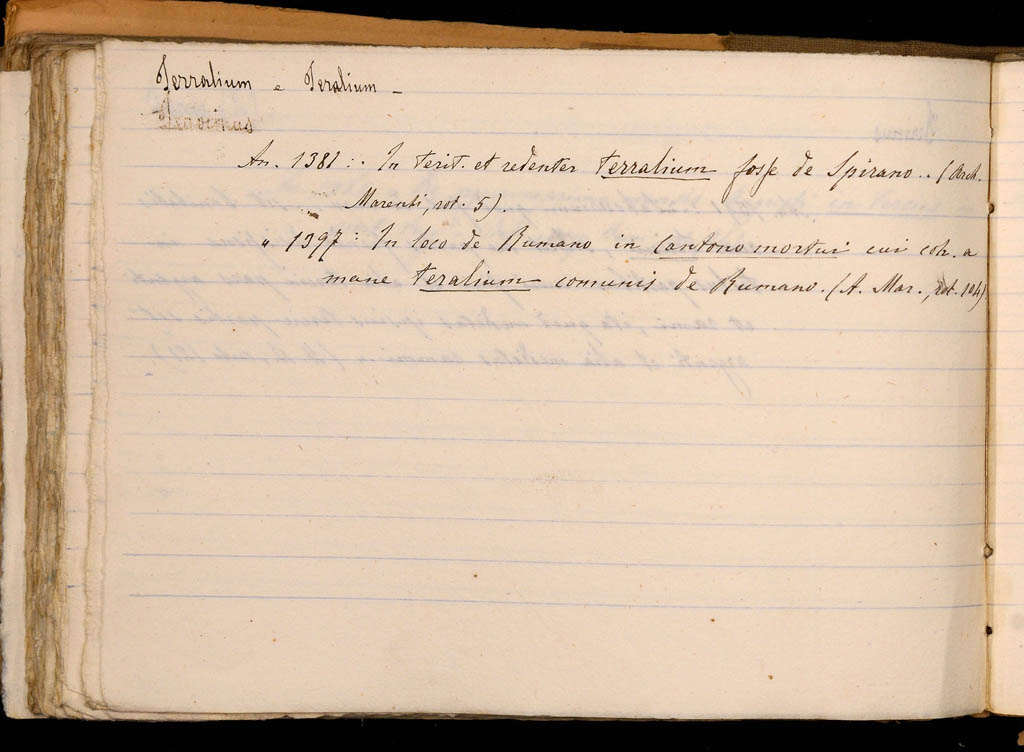 Terralium e Teralium -
An. 1381: In terit. et redenter terralium fosse de Spirano.. (Arch.
Marenti, rot. 5).
" 1397: In loco de Rumano in Cantono mortui cui coh. a
mane teralium comunis de Rumano. (A. Mar., rot. 104)